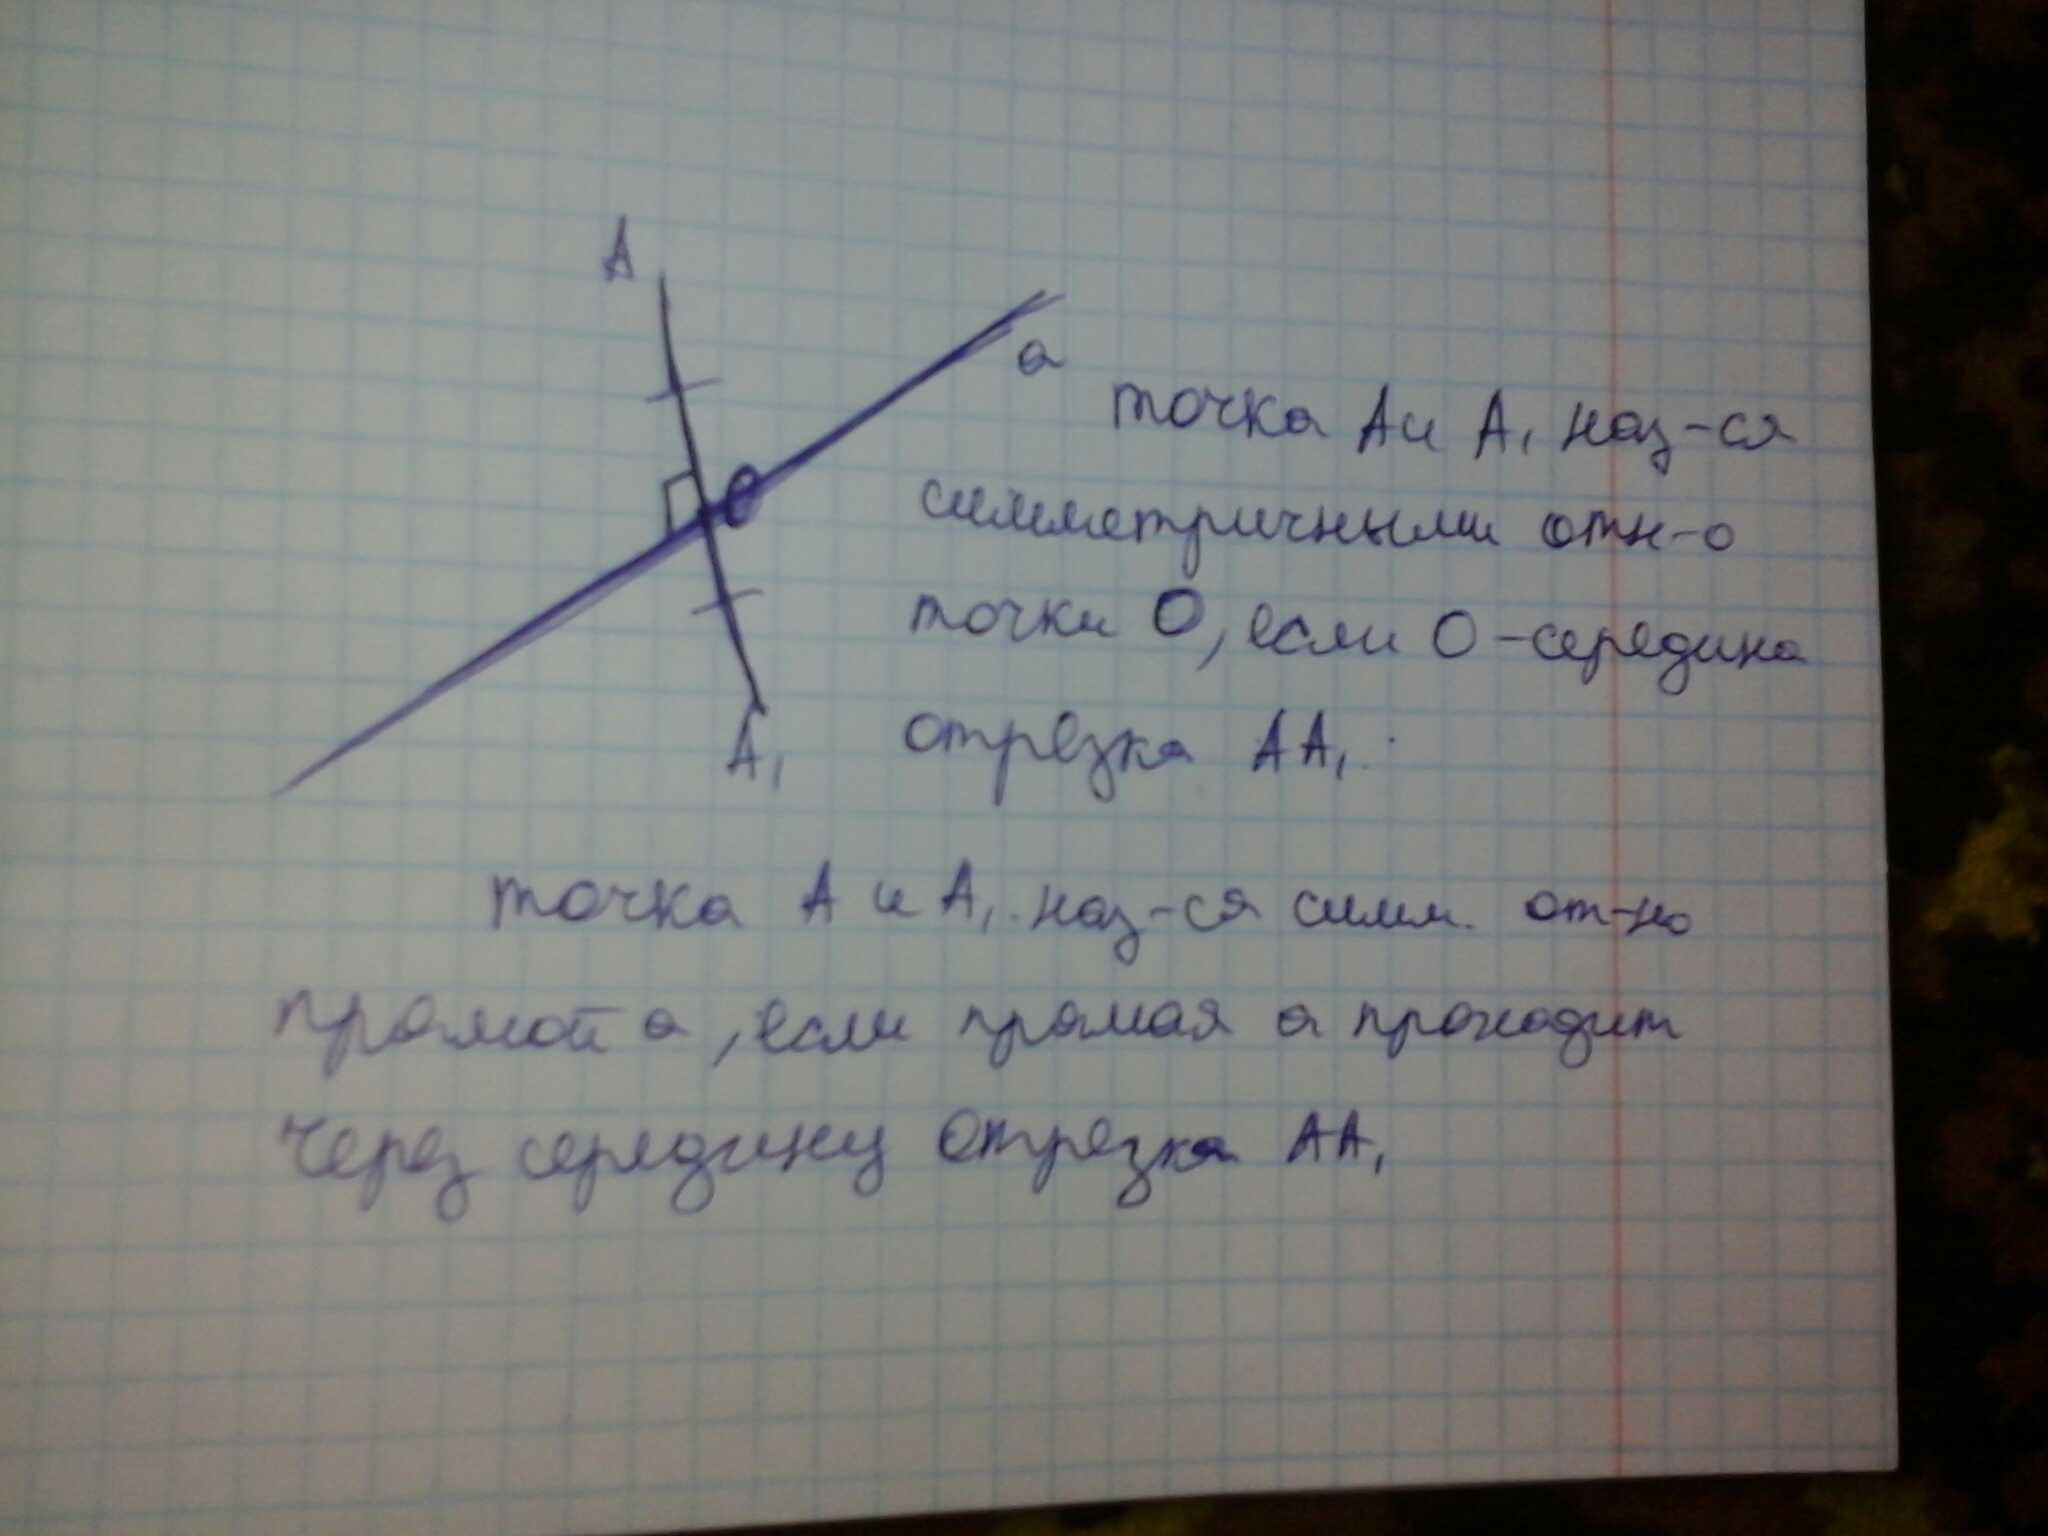 A
a
O
A₁
точка A и A₁ наз-ся
симметричными отн-о
точки O, если O - середина
отрезка AA₁.
точка A и A₁ наз-ся симм. от-но
прямой a, если прямая a проходит
через середину отрезка AA₁